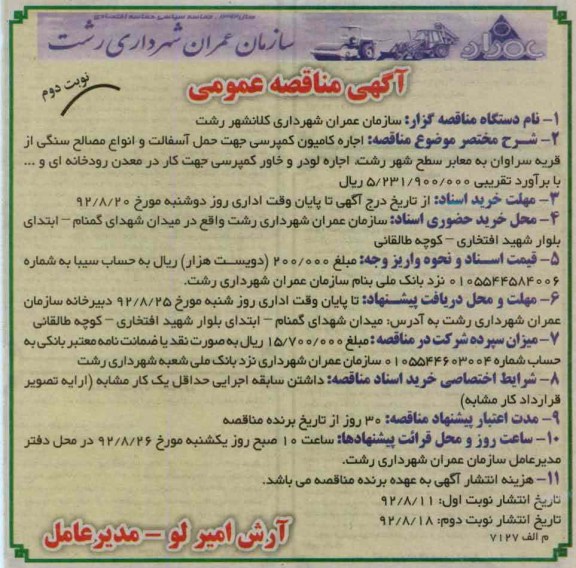 سال ۱۳۹۲، حماسه سیاسی حماسه اقتصادی
سازمان عمران شهرداری رشت
عمران
آگهی مناقصه عمومی
نوبت دوم
۱- نام دستگاه مناقصه گزار: سازمان عمران شهرداری کلانشهر رشت
۲- شرح مختصر موضوع مناقصه: اجاره کامیون کمپرسی جهت حمل آسفالت و انواع مصالح سنگی از
قریه سراوان به معابر سطح شهر رشت، اجاره لودر و خاور کمپرسی جهت کار در معدن رودخانه ای و ...
با برآورد تقریبی ۵/۲۳۱/۹۰۰/۰۰۰ ریال
۳- مهلت خرید اسناد: از تاریخ درج آگهی تا پایان وقت اداری روز دوشنبه مورخ ۹۲/۸/۲۰
۴- محل خرید حضوری اسناد: سازمان عمران شهرداری رشت واقع در میدان شهدای گمنام – ابتدای
بلوار شهید افتخاری – کوچه طالقانی
۵- قیمت اسناد و نحوه واریز وجه: مبلغ ۲۰۰/۰۰۰ (دویست هزار) ریال به حساب سیبا به شماره
۰۱۰۵۵۴۴۵۸۴۰۰۶ نزد بانک ملی بنام سازمان عمران شهرداری رشت.
۶- مهلت و محل دریافت پیشنهاد: تا پایان وقت اداری روز شنبه مورخ ۹۲/۸/۲۵ دبیرخانه سازمان
عمران شهرداری رشت به آدرس: میدان شهدای گمنام – ابتدای بلوار شهید افتخاری – کوچه طالقانی
۷- میزان سپرده شرکت در مناقصه: مبلغ ۱۵/۷۰۰/۰۰۰ ریال به صورت نقد یا ضمانت نامه معتبر بانکی به
حساب شماره ۰۱۰۵۵۴۴۶۰۳۰۰۴ سازمان عمران شهرداری نزد بانک ملی شعبه شهرداری رشت
۸- شرایط اختصاصی خرید اسناد مناقصه: داشتن سابقه اجرایی حداقل یک کار مشابه (ارایه تصویر
قرارداد کار مشابه)
۹- مدت اعتبار پیشنهاد مناقصه: ۳۰ روز از تاریخ برنده مناقصه
۱۰- ساعت روز و محل قرائت پیشنهادها: ساعت ۱۰ صبح روز یکشنبه مورخ ۹۲/۸/۲۶ در محل دفتر
مدیرعامل سازمان عمران شهرداری رشت.
۱۱- هزینه انتشار آگهی به عهده برنده مناقصه می باشد.
تاریخ انتشار نوبت اول: ۹۲/۸/۱۱
تاریخ انتشار نوبت دوم: ۹۲/۸/۱۸
م الف ۷۱۲۷
آرش امیر لو – مدیرعامل